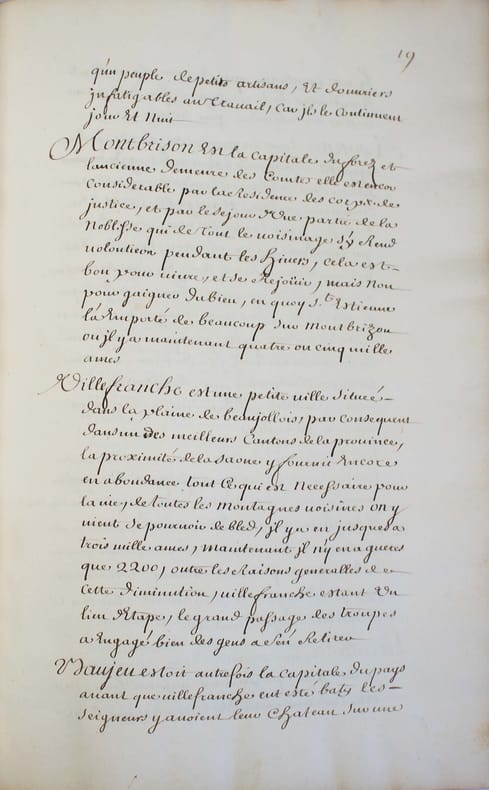 19
qu'un peuple de petits artisans, Et douuriers
jnfatigables au travail, car jls le continuent
jour Et Nuit
Montbrison Est la capitale du forez et
lancienne demeure des Comtes elle est encor
Considerable par la Residence des corps de
justice, et par le sejour dune partie de la
Noblesse qui de tout le uoisinage s'y Rend
uolontiers pendant les hiuers, cela est
bon pour uiure, et se Rejoüir, mais Non
pour gaigner du bien, en quoy St Estienne
la Emporté de beaucoup sur Montbrizon
ou jl y a maintenant quatre ou cinq mille
ames
Villefranche est une petite uille situeé
dans la plaine de beaujollois, par consequent
dans un des meilleurs Cantons de la prouince,
la proximité de la saone y fournit Encore
en abondance tout Ce qui est Necessaire pour
la uie, de toutes les montagnes uoisines on y
uient se pouruoir de bled, jl y a eu jusques a
trois mille ames, Maintenant jl n'y en a gueres
que 2200, outre les Raisons generalles de
cette diminution, uillefranche estant un
lieu dEtape, le grand passage des trouppes
a Engagé bien des gens a s'en Retirer
Beaujeu estoit autrefois la capitale du pays
auant que uillefranche eut esté baty les
seigneurs y auoient leur Chateau sur une